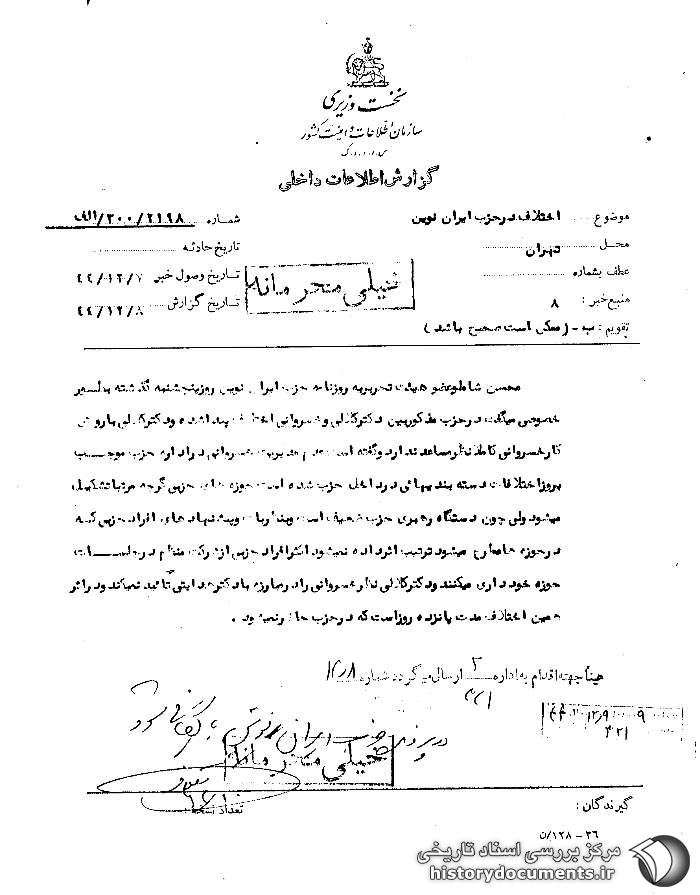 نخست وزیری
سازمان اطلاعات و امنیت کشور
س.ا.و.ا.ک
گزارش اطلاعات داخلی
موضوع اختلاف در حزب ایران نوین
شماره ۲۱۹۸/۳۰۰/الف
محل تهران
تاریخ حادثه
عطف بشماره
تاریخ وصول خبر ۴۴/۱۲/۷
خیلی محرمانه
منبع خبر : ۸
تاریخ گزارش ۴۴/۱۲/۸
تقویم : ب - ( ممکن است صحیح باشد )
محسن شاملو عضو هیئت تحریریه روزنامه حزب ایران نوین روز پنجشنبه گذشته بطور
خصوصی میگفت در حزب مذکور بین دکتر کلالی و خسروانی اختلاف پیدا شده و دکتر کلالی با روش
کار خسروانی کاملا نظر مساعد ندارد و گفته است عدم مدیریت خسروانی در اداره حزب موجب
بروز اختلافات دسته بندیهائی در داخل حزب شده است حوزه های حزبی گرچه مرتبا تشکیل
میشود ولی چون دستگاه رهبری حزب ضعیف است و بنظریات و پیشنهادهای افراد حزبی که
در حوزه ها مطرح میشود ترتیب اثر داده نمیشود اکثر افراد حزبی از شرکت منظم در جلسات
حوزه خودداری میکنند و دکتر کلالی نظر خسروانی را در مبارزه با دکتر هدایتی تأئید نمیکند و در اثر
همین اختلاف مدت پانزده روز است که در حزب حاضر نمیشود .
عیناً جهت اقدام به اداره ۳ ارسال میگردد شماره
۳۲۱
۱۲/۹
۳۲۱
در پرونده حزب ایران نوین بایگانی شود
خیلی محرمانه
گیرندگان :
تعداد نسخه :
۳۶ - ۱۲۸/ن
مرکز بررسی اسناد تاریخی
historydocuments.ir